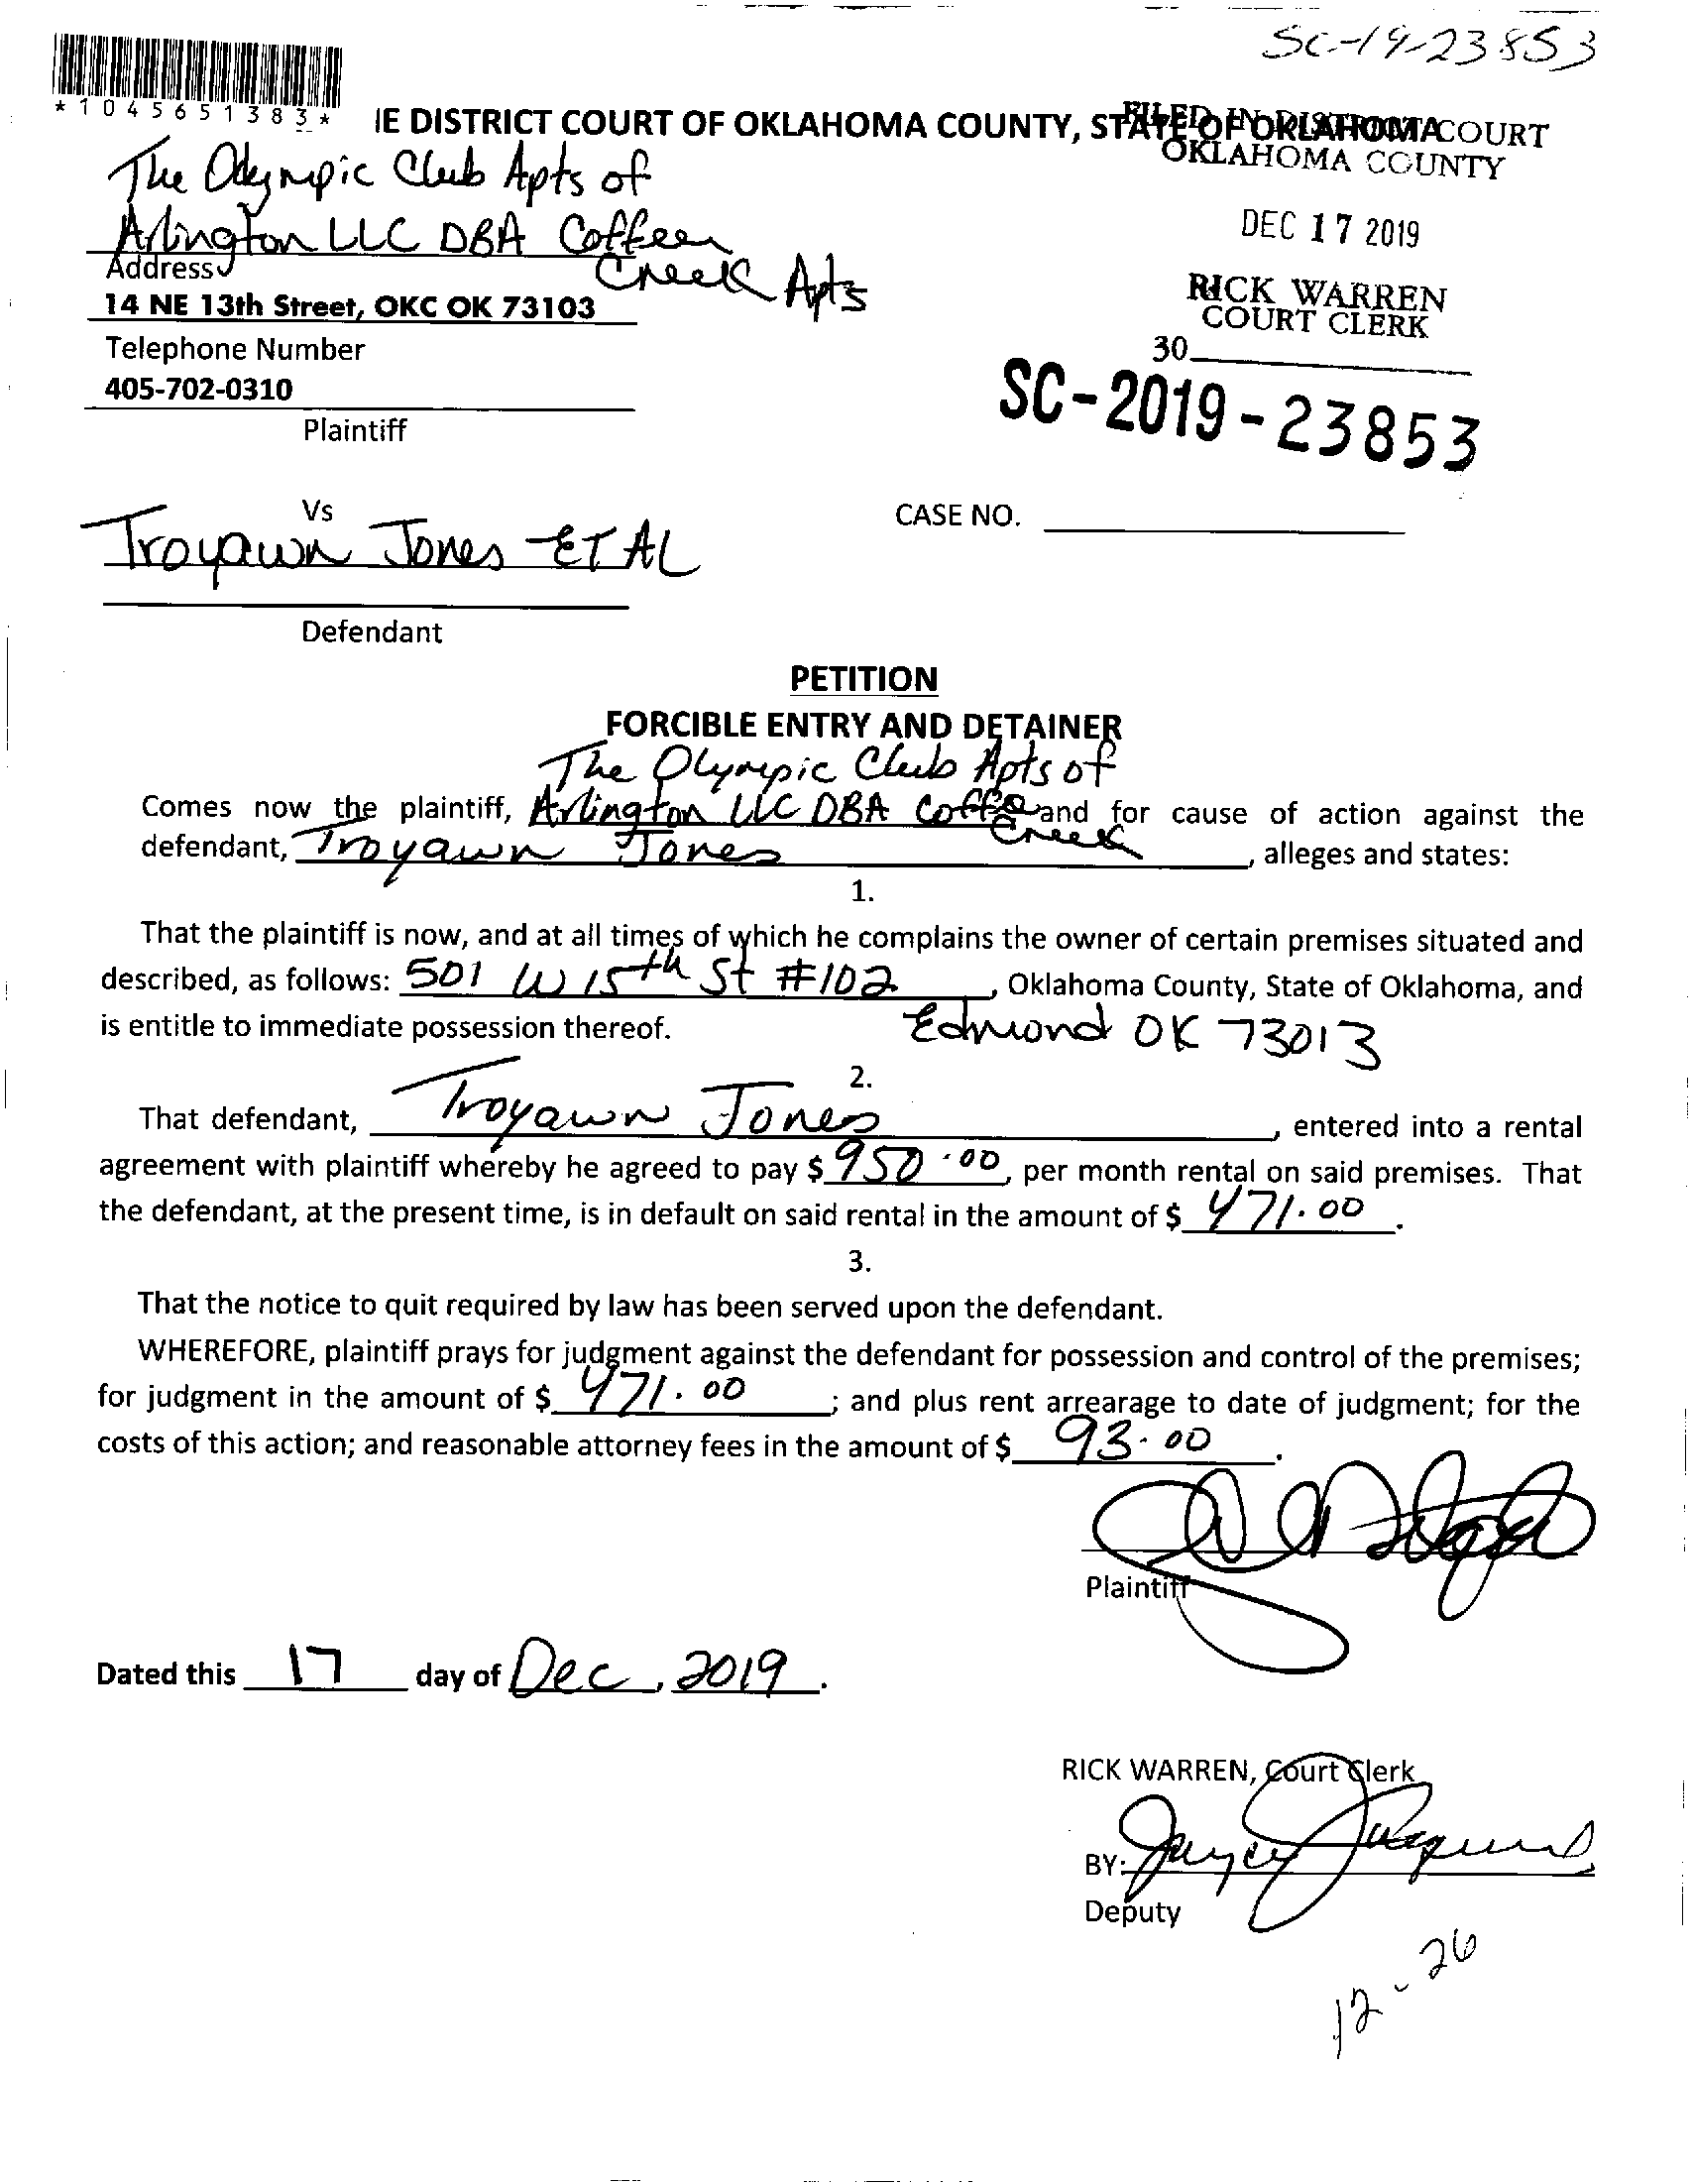 SC-19-23853
*1045651383*
IE DISTRICT COURT OF OKLAHOMA COUNTY, STATE OF OKLAHOMA
FILED IN DISTRICT COURT
OKLAHOMA COUNTY
DEC 17 2019
RICK WARREN
COURT CLERK
30
SC-2019-23853
The Olympic Club Apts of
Arlington LLC DBA Coffee
Creek Apts
Address
14 NE 13th Street, OKC OK 73103
Telephone Number
405-702-0310
Plaintiff
Vs
CASE NO.
Troyawn Jones ET AL
Defendant
PETITION
FORCIBLE ENTRY AND DETAINER
The Olympic Club Apts of
Comes now the plaintiff, Arlington LLC DBA Coffee and for cause of action against the
Creek
defendant, Troyawn Jones, alleges and states:
1.
That the plaintiff is now, and at all times of which he complains the owner of certain premises situated and
described, as follows: 501 W 15th St #102, Oklahoma County, State of Oklahoma, and
is entitle to immediate possession thereof. Edmond OK 73013
2.
That defendant, Troyawn Jones, entered into a rental
agreement with plaintiff whereby he agreed to pay $ 950.00, per month rental on said premises. That
the defendant, at the present time, is in default on said rental in the amount of $ 471.00.
3.
That the notice to quit required by law has been served upon the defendant.
WHEREFORE, plaintiff prays for judgment against the defendant for possession and control of the premises;
for judgment in the amount of $ 471.00; and plus rent arrearage to date of judgment; for the
costs of this action; and reasonable attorney fees in the amount of $ 93.00.
Plaintiff
Dated this 17 day of Dec, 2019.
RICK WARREN, Court Clerk
BY:
Deputy
12-26